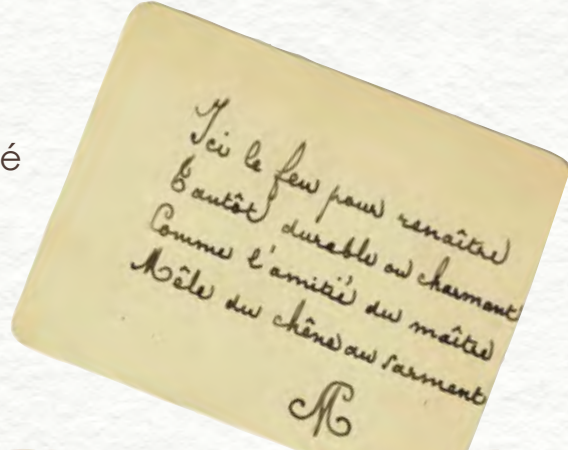 é
Ici le feu pour renaître
Tantôt durable ou charmant
Comme l'amitié du maître
Mêle du chêne au sarment
M